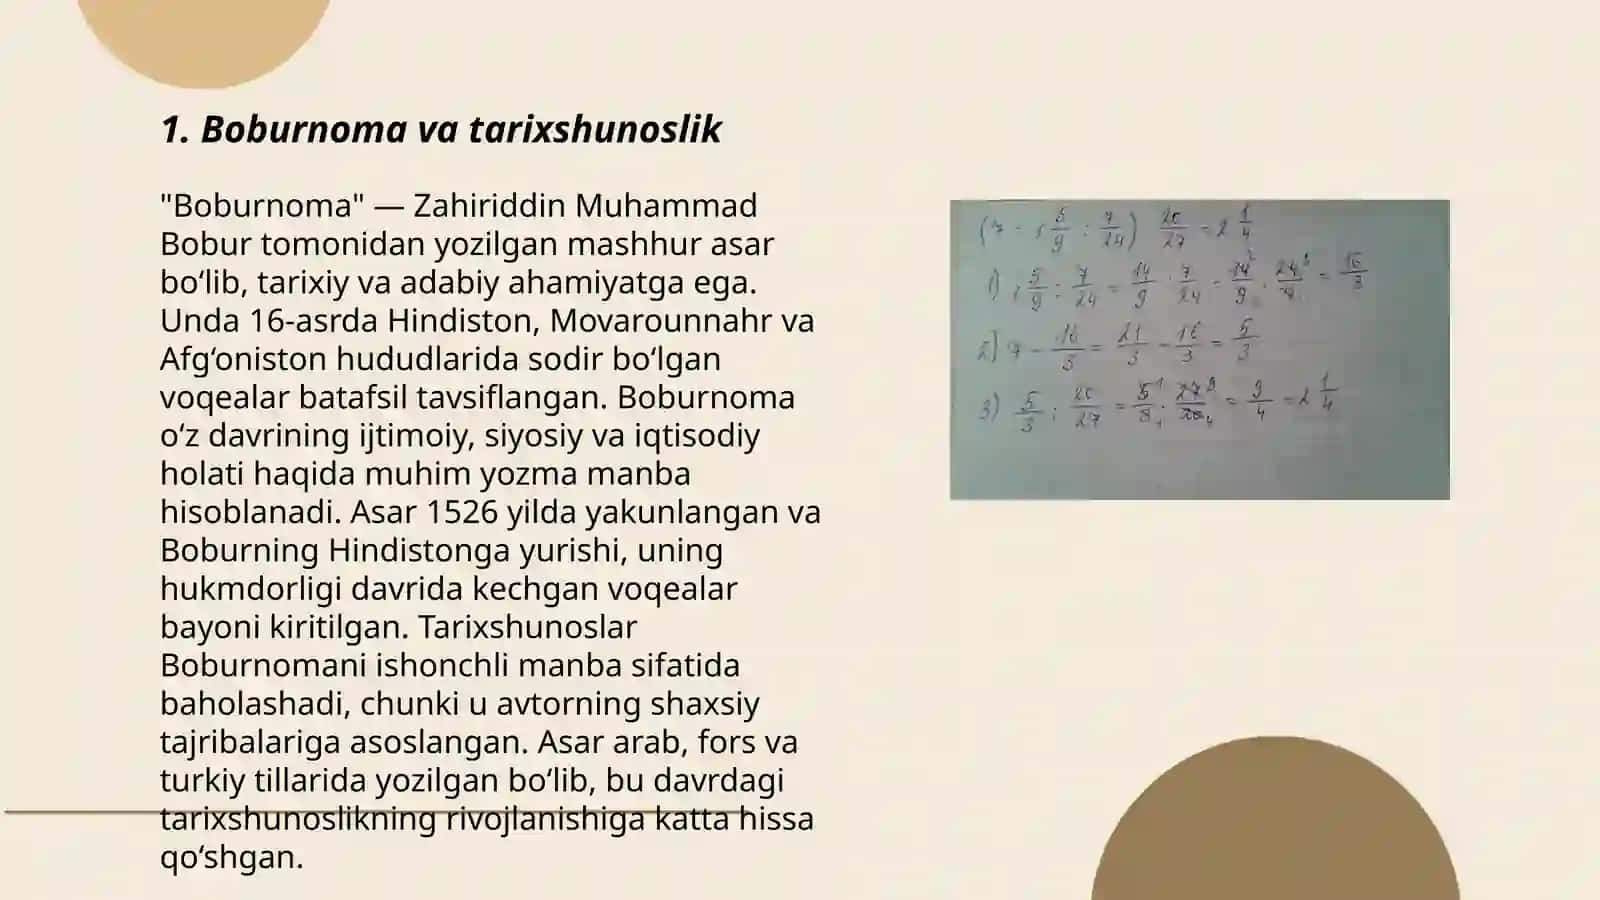 1. Boburnoma va tarixshunoslik
"Boburnoma" — Zahiriddin Muhammad
Bobur tomonidan yozilgan mashhur asar
bo‘lib, tarixiy va adabiy ahamiyatga ega.
Unda 16-asrda Hindiston, Movarounnahr va
Afg‘oniston hududlarida sodir bo‘lgan
voqealar batafsil tavsiflangan. Boburnoma
o‘z davrining ijtimoiy, siyosiy va iqtisodiy
holati haqida muhim yozma manba
hisoblanadi. Asar 1526 yilda yakunlangan va
Boburning Hindistonga yurishi, uning
hukmdorligi davrida kechgan voqealar
bayoni kiritilgan. Tarixshunoslar
Boburnomani ishonchli manba sifatida
baholashadi, chunki u avtorning shaxsiy
tajribalariga asoslangan. Asar arab, fors va
turkiy tillarida yozilgan bo‘lib, bu davrdagi
tarixshunoslikning rivojlanishiga katta hissa
qo‘shgan.
(7 - 1 5/9 : 7/24) 20/27 = 2 1/4
1) 1 5/9 : 7/24 = 14/9 : 7/24 = 14/9 · 24/7 = 16/3
2) 7 - 16/3 = 21/3 - 16/3 = 5/3
3) 5/3 : 20/27 = 5/3 · 27/20 = 9/4 = 2 1/4